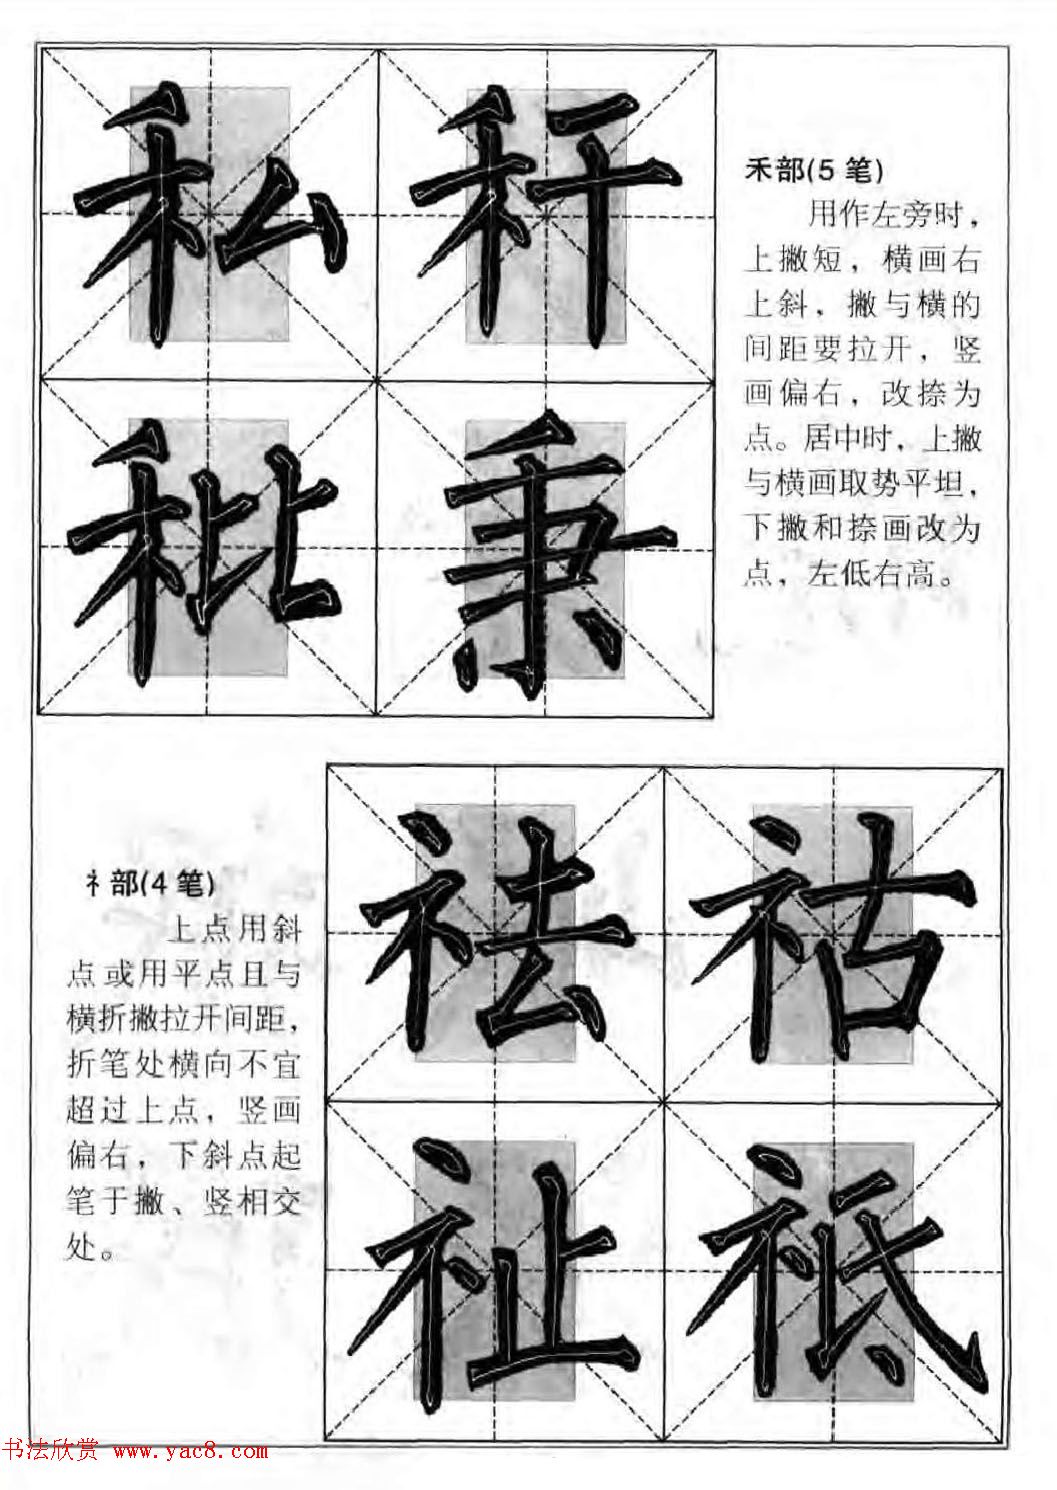 私 秆
秕 秉
禾部(5 笔)
用作左旁时，
上撇短，横画右
上斜，撇与横的
间距要拉开，竖
画偏右，改捺为
点。居中时，上撇
与横画取势平坦，
下撇和捺画改为
点，左低右高。
礻部(4 笔)
上点用斜
点或用平点且与
横折撇拉开间距，
折笔处横向不宜
超过上点，竖画
偏右，下斜点起
笔于撇、竖相交
处。
祛 祜
祉 祗
书法欣赏 www.yac8.com